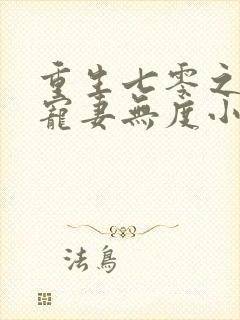 重生七零之
寵妻無度小
法鳥